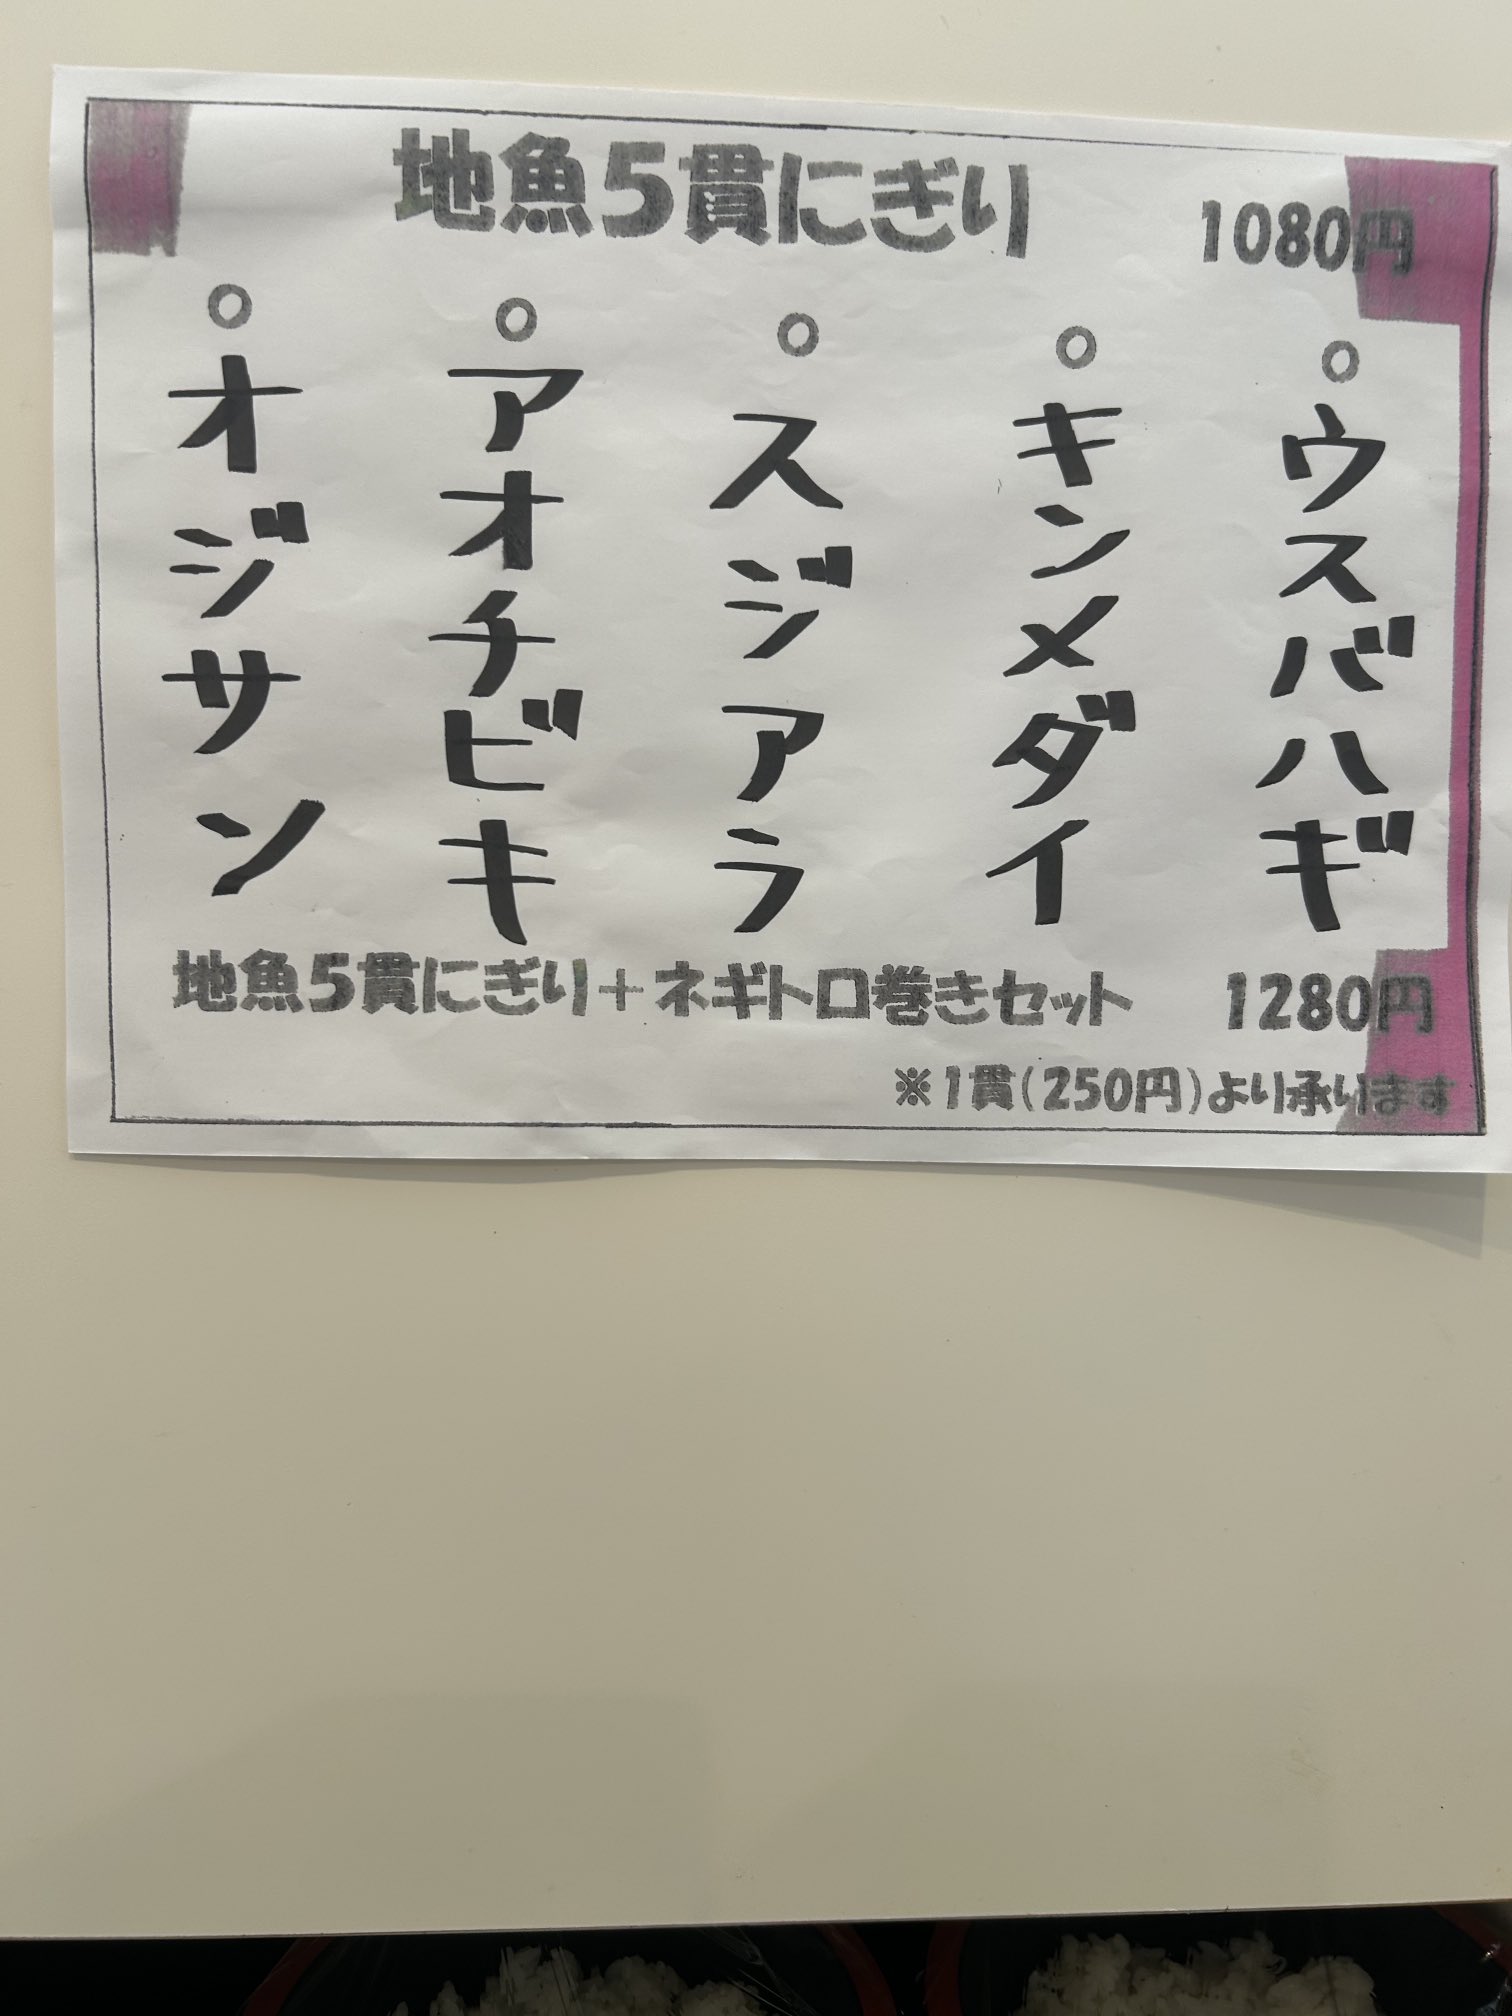 地魚5貫にぎり 1080円
○ウスバハギ
○キンメダイ
○スジアラ
○アオチビキ
○オジサン
地魚5貫にぎり＋ネギトロ巻きセット 1280円
※1貫(250円)より承ります